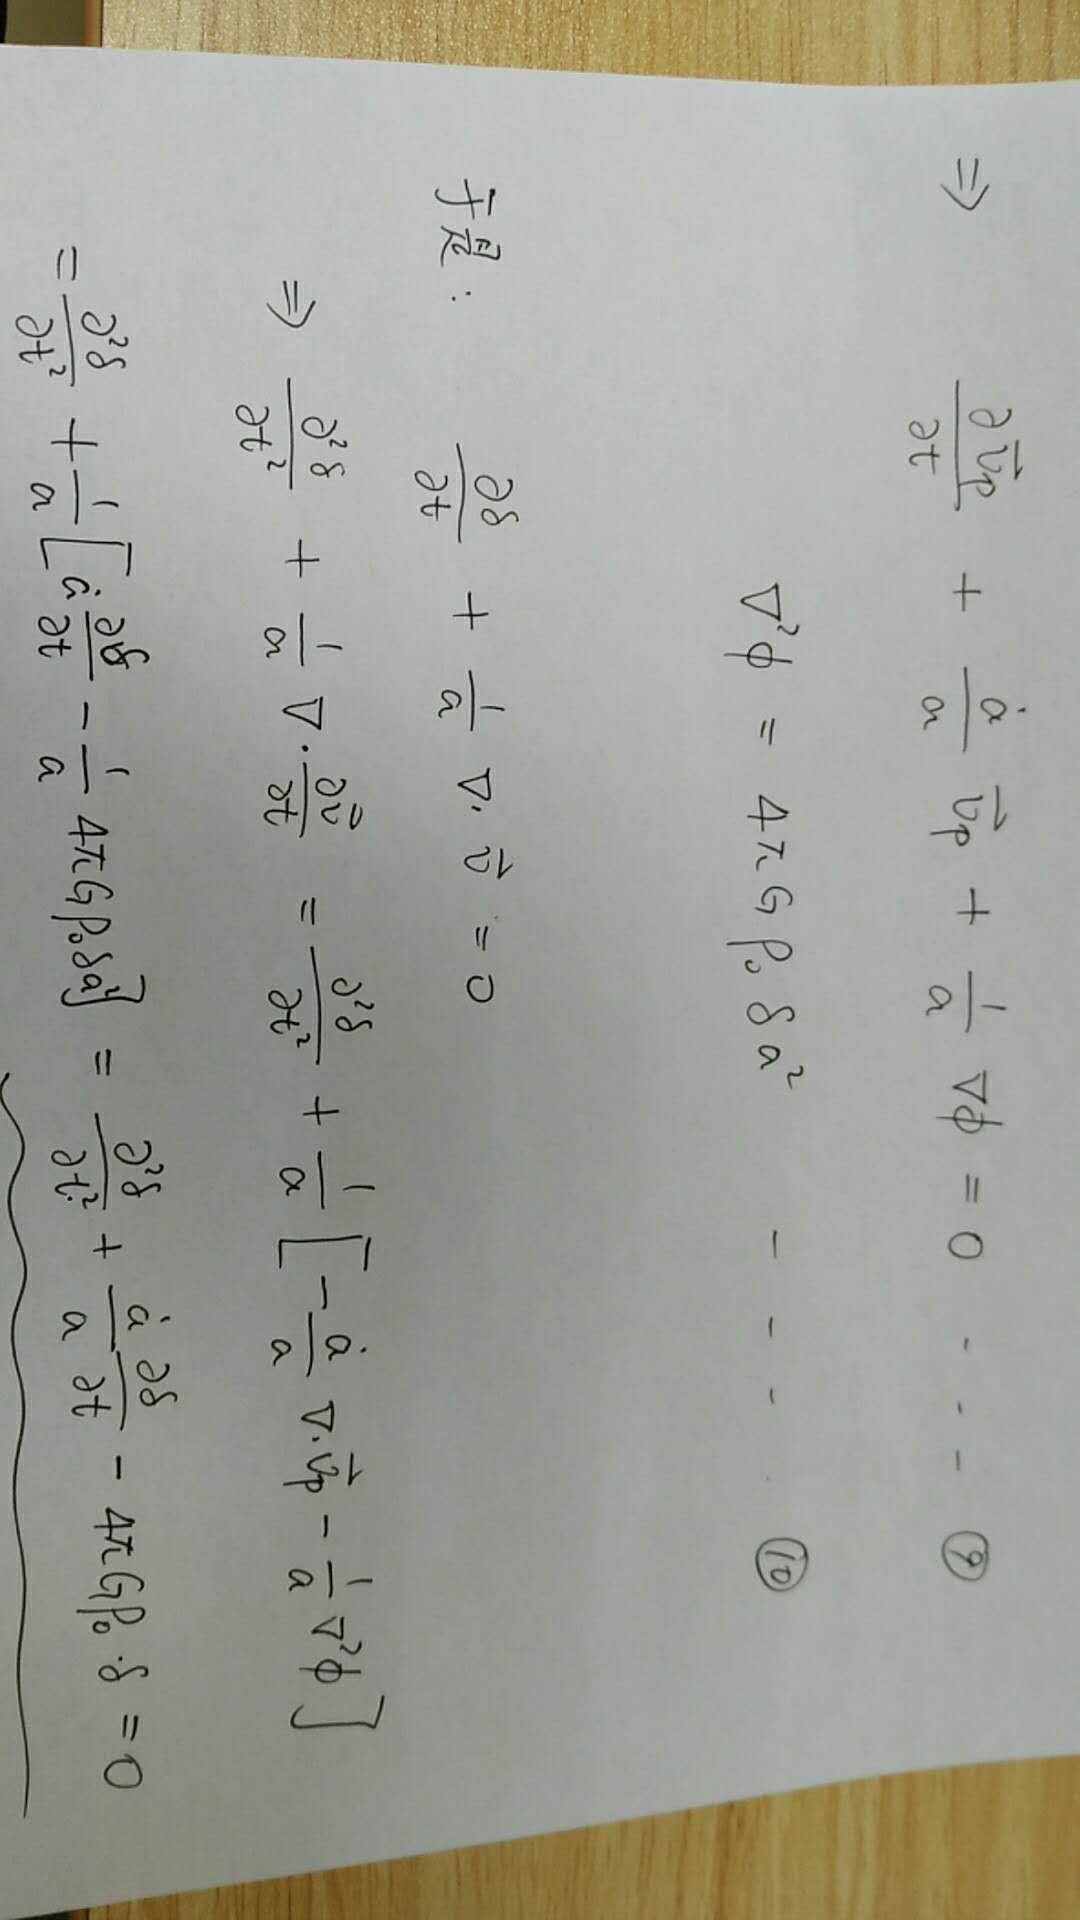 ⇒ ∂v⃗p/∂t + ȧ/a v⃗p + 1/a ∇φ = 0 - - - ⑨
∇²φ = 4πGρ₀δa² - - - ⑩
于是: ∂δ/∂t + 1/a ∇·v⃗ = 0
⇒ ∂²δ/∂t² + 1/a ∇·∂v⃗/∂t = ∂²δ/∂t² + 1/a [-ȧ/a ∇·v⃗p - 1/a ∇²φ]
= ∂²δ/∂t² + 1/a [ȧ ∂δ/∂t - 1/a 4πGρ₀δa²] = ∂²δ/∂t² + ȧ/a ∂δ/∂t - 4πGρ₀·δ = 0